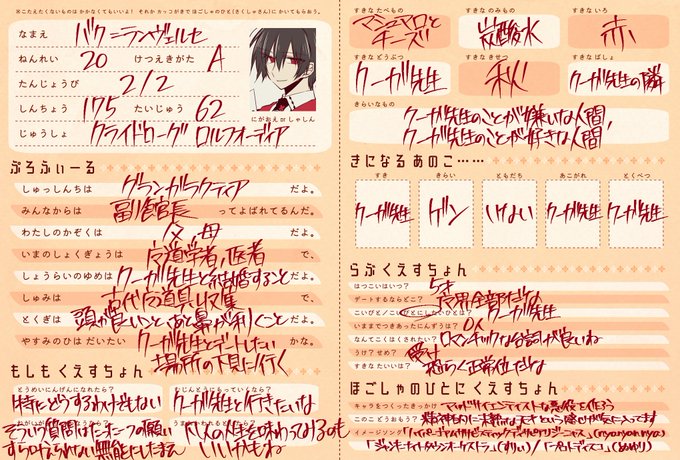 ※こたえたくないものは かかなくてもいいよ! それか カッコがきで ほごしゃのひと(さくしゃさん)に かいてもらおう。
なまえ バク=ランヴェルセ
ねんれい 20 けつえきがた A
たんじょうび 2/2
しんちょう 175 たいじゅう 62
じゅうしょ クライドローグ ロルフォーディア
にがおえ or しゃしん
ぷろふぃーる
しゅっしんちは グランガラクティア だよ。
みんなからは 副館長 ってよばれてるんだ。
わたしのかぞくは 父、母 だよ。
いまのしょくぎょうは 医者 で、
しょうらいのゆめは クーガ先生と結婚すること だよ。
しゅみは 古代 道具収集 で、
とくぎは 頭が良いこと、あと鼻が利くこと だよ。
やすみのひは だいたい クーガ先生とデートしたい かな。
場所の下見に行く
もしも くえすちょん
とうめいにんげんになれたら?
特にどうするわけでもない
むじんとうにもっていくなら?
クーガ先生と行きたいな
そういう質問はたった一つの願い
すら叶えられない無能にしたまえ
凡人の人生を味わってみるのも
いいかもね
すきなたべもの
マシュマロと
チーズ
すきなのみもの
炭酸水
すきないろ
赤
すきなどうぶつ
クーガ先生
すきなきせつ
秋
すきなばしょ
クーガ先生の隣
きらいなもの
クーガ先生のことが嫌いな人間、
クーガ先生のことが好きな人間、
きになる あのこ……
すき
クーガ先生
きらい
ゲン
ともだち
いない
あこがれ
クーガ先生
とくべつ
クーガ先生
らぶくえすちょん
はつこいはいつ? 5才
デートするならどこ? 世界全部だな
こいびと/こいびとにしたいひとは? クーガ先生
いままでつきあったにんずうは? 0人
なんてこくはくされたい? ロマンチックな台詞が良いね
うけ?せめ?
すきなたいいは? 恐らく正常位だな
ほごしゃのひとに くえすちょん
キャラをつくったきっかけ? マッドサイエンティストな悪役を作ろう
このこどうおもう? 精神的に未熟な天才という感じが気に入ってます
イメージソング?